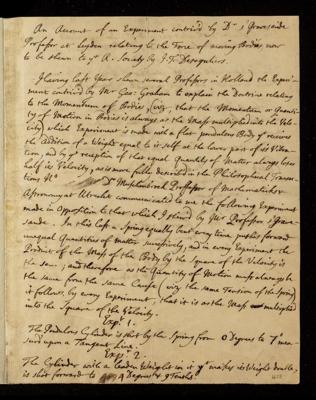 An Account of an Experiment contriv'd by Dr 's Gravesande
Professor at Leyden relating to the Force of moving Bodies, now
to be shewn to ye R. Society by J. T. Desaguliers.
Having last Year shewn several Professors in Holland the Experi-
ment contriv'd by Mr Geo: Graham to explain the Doctrine relating
to the Momentum of Bodies, (viz. that the Momentum or Quanti-
ty of Motion in Bodies is always as the Mass multiplied into the Velo-
city) which Experiment is made with a flat pendulous Body yt receives
the Addition of a Weight equal to it self at the lower part of its Vibra-
tion, and by ye reception of that equal Quantity of Matter always loses
half its Velocity, as is more fully describ'd in the Philosophical Transac-
tions No
Dr Muschenbroek Professor of Mathematicks &
Astronomy at Utrecht communicated to me the following Experiment
made in Opposition to that which I shewd by Mr Professor 's Grave-
sande. In this last a Spring equally bent every time pushes forward
unequal Quantities of Matter successively, and in every Experiment the
Product of the Mass of the Body by the Square of the Velocity is
the same; and therefore as the Quantity of Motion must always be
the same from the same Cause (viz. the same Tension of the Spring)
it follows, by every Experiment, that it is as the Mass multiplied
into the Square of the Velocity.
Exp. 1.
The Pendulous Cylinder is shot by the Spring from 0 Degrees to 7° mea-
sur'd upon a Tangent Line.
Exp. 2.
The Cylinder with a leaden Weight in it yt makes its Weight double,
is shot forward to 4 Degrees & 9 Tenths